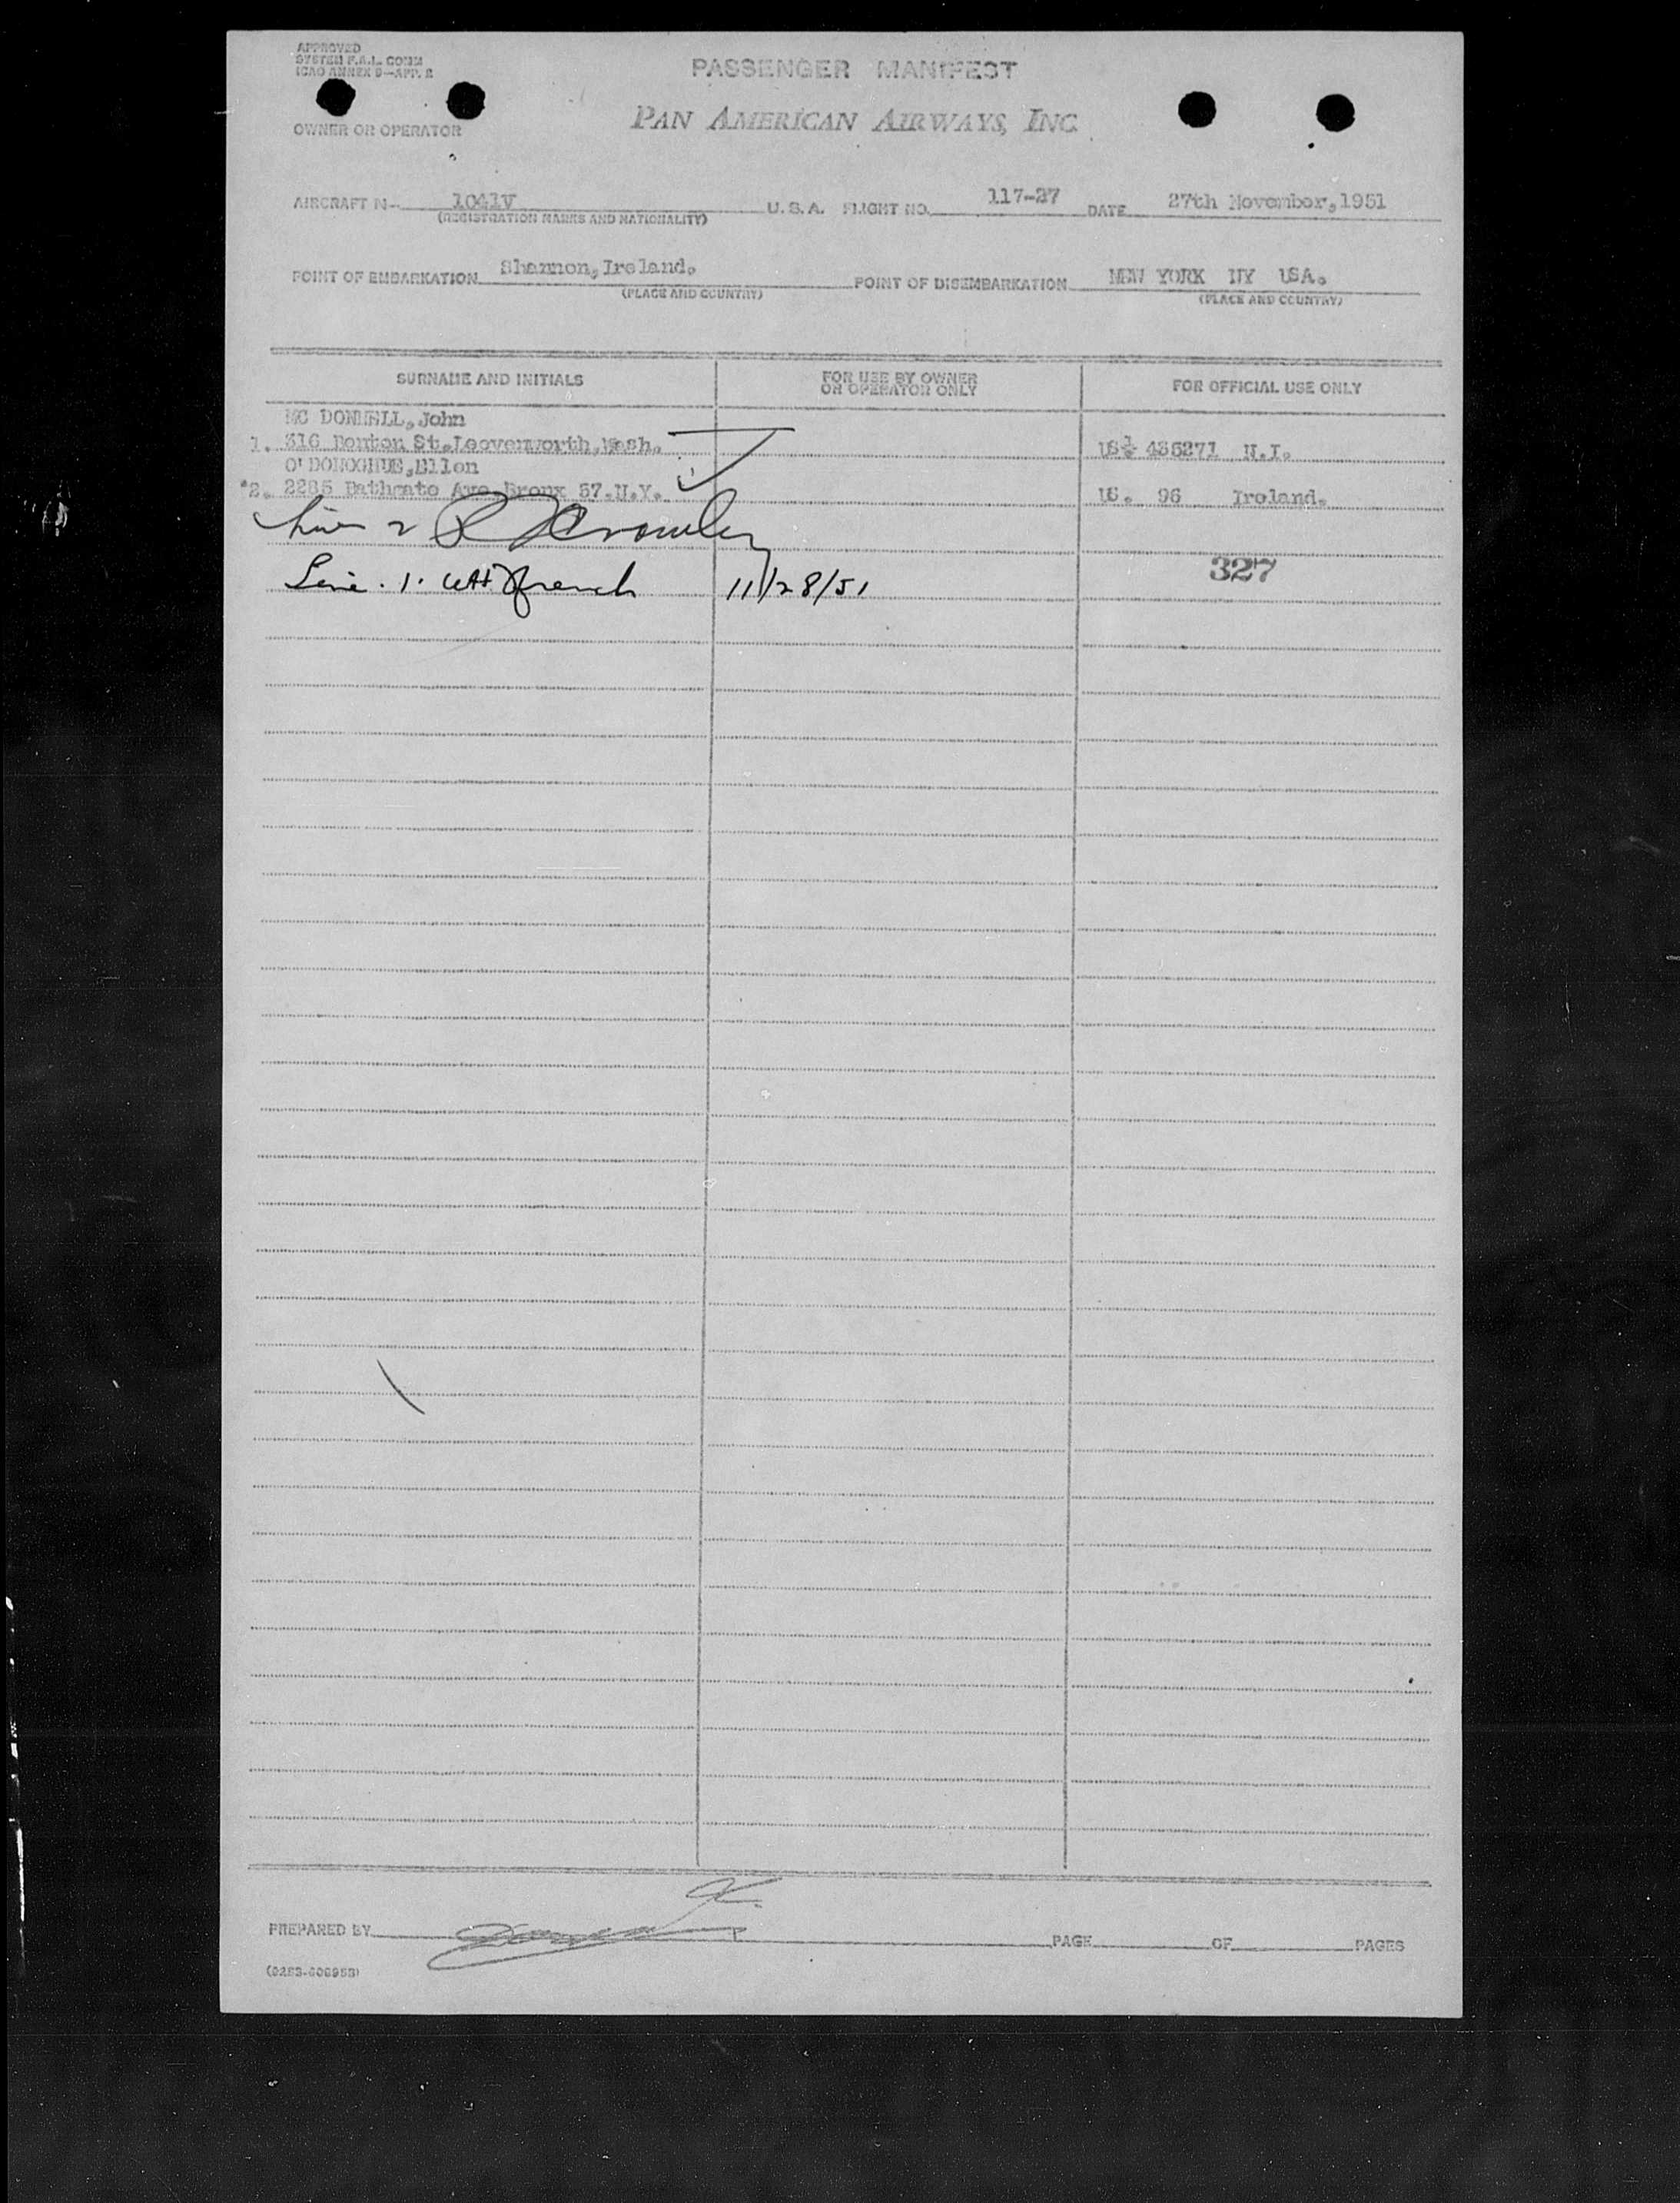 APPROVED
SYSTEM F.A.L. COMM
ICAO ANNEX 9—APP. 2
PASSENGER MANIFEST
OWNER OR OPERATOR
PAN AMERICAN AIRWAYS, INC.
AIRCRAFT N— 1041V U. S. A. FLIGHT NO. 117-27 DATE 27th November,1951
(REGISTRATION MARKS AND NATIONALITY)
POINT OF EMBARKATION Shannon,Ireland. POINT OF DISEMBARKATION NEW YORK NY USA.
(PLACE AND COUNTRY) (PLACE AND COUNTRY)
SURNAME AND INITIALS FOR USE BY OWNER OR OPERATOR ONLY FOR OFFICIAL USE ONLY
MC DONNELL,John
1. 316 Benton St.Leavenworth,Wash. US 435271 N.I.
O'DONOGHUE,Ellen
*2. 2285 Bathgate Ave.Bronx 57.N.Y. US. 96 Ireland.
Line 2 Crowley
327
Line . 1. French 11/28/51
PREPARED BY PAGE OF PAGES